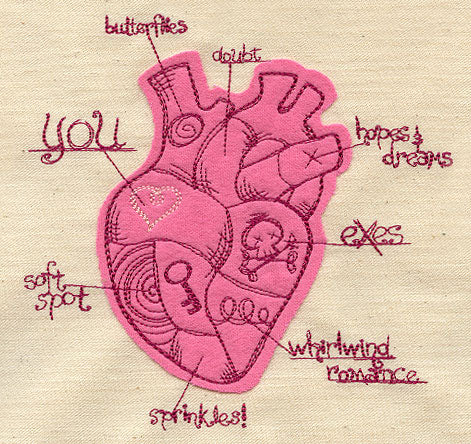 butterflies
doubt
YOU
hopes &
dreams
exes
soft
spot
whirlwind
romance
sprinkles!